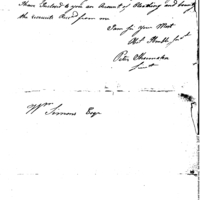 I have Enclosed to you an Account of Clothing and
the recruits Rec'd from me
I am Sir your Most
Obt Humble Servt
Peter
Lieut
Wm Simmons Esqr